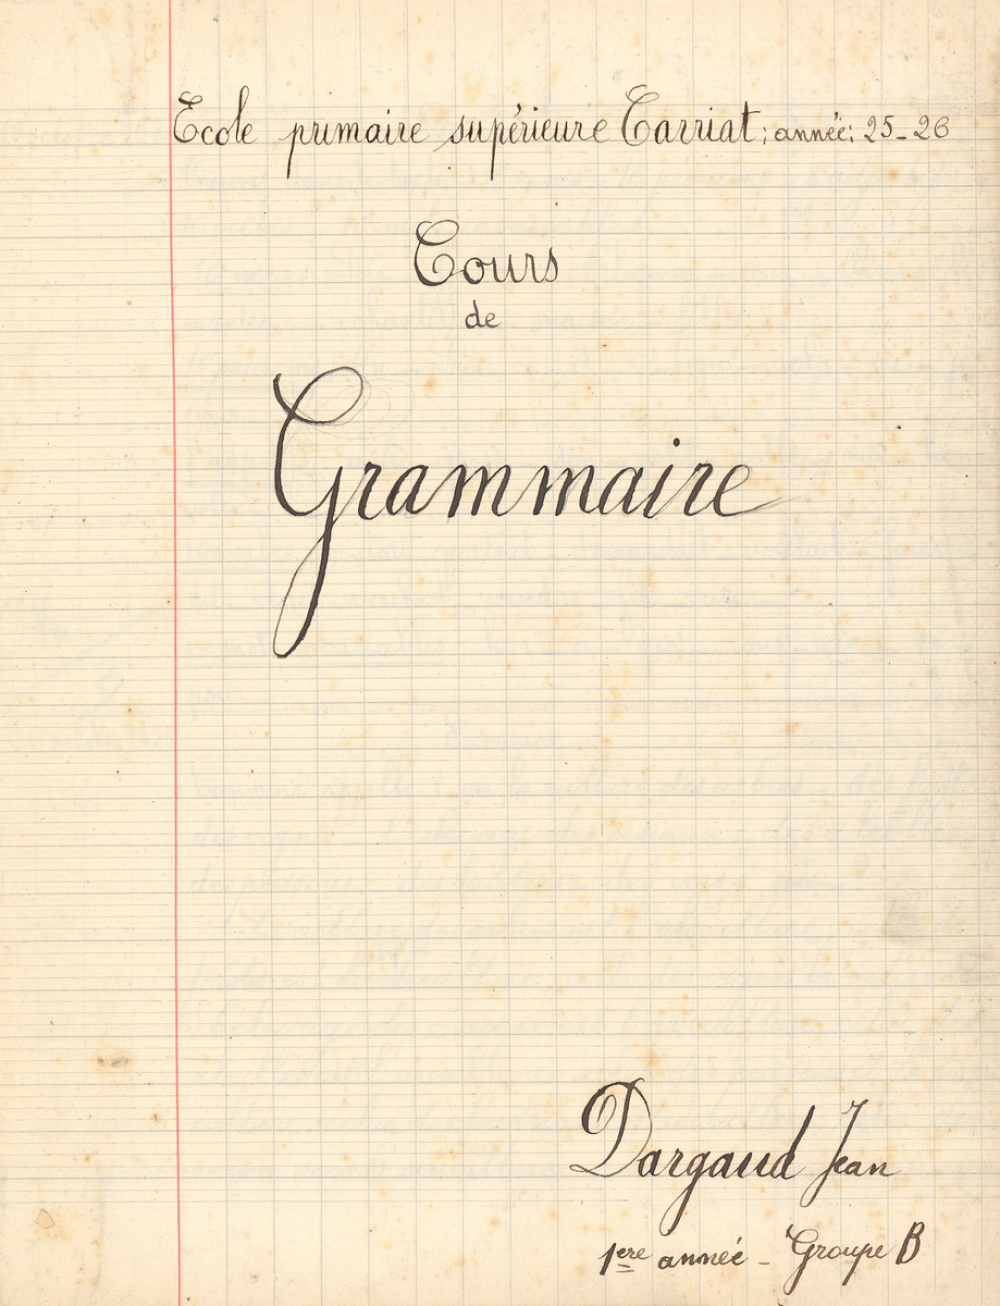 Ecole primaire supérieure Carriat ; année : 25-26
Cours
de
Grammaire
Dargaud Jean
1ère année - Groupe B